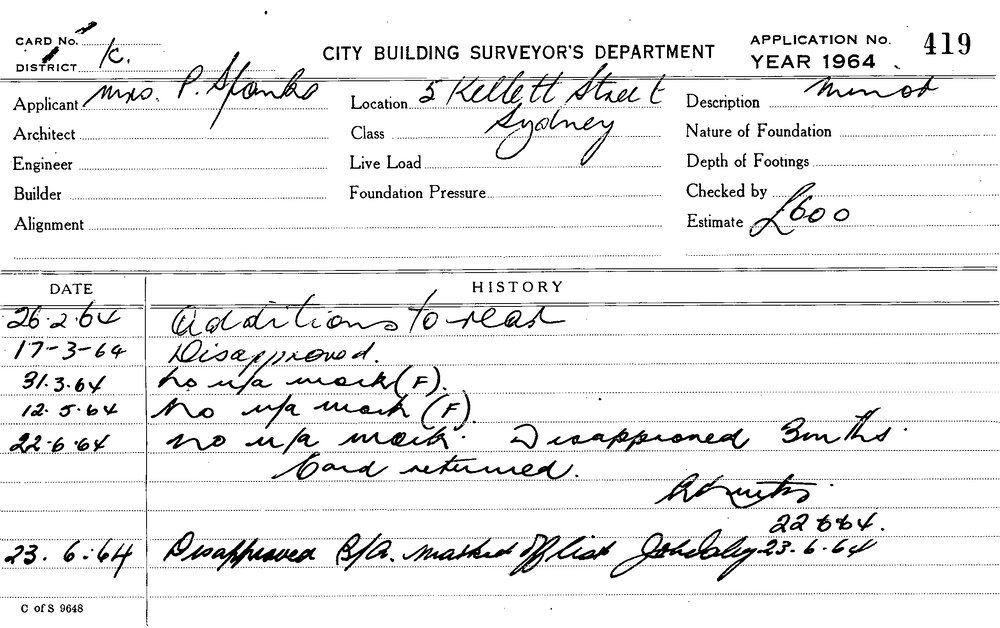 CARD No.
DISTRICT K.
CITY BUILDING SURVEYOR'S DEPARTMENT
APPLICATION No. 419
YEAR 1964
Applicant Mrs. P. Spanks
Location 5 Kellett Street
Sydney
Description Minor
Architect
Class
Nature of Foundation
Engineer
Live Load
Depth of Footings
Builder
Foundation Pressure
Checked by
Alignment
Estimate £600
DATE HISTORY
26.2.64 Additions to rear
17-3-64 Disapproved.
31.3.64 No u/a work (F).
12.5.64 No u/a work (F)
22.6.64 No u/a work. Disapproved 3 mths.
Card returned.
22 6 64.
23.6.64 Disapproved B/A. marked off list 23.6.64
C of S 9648